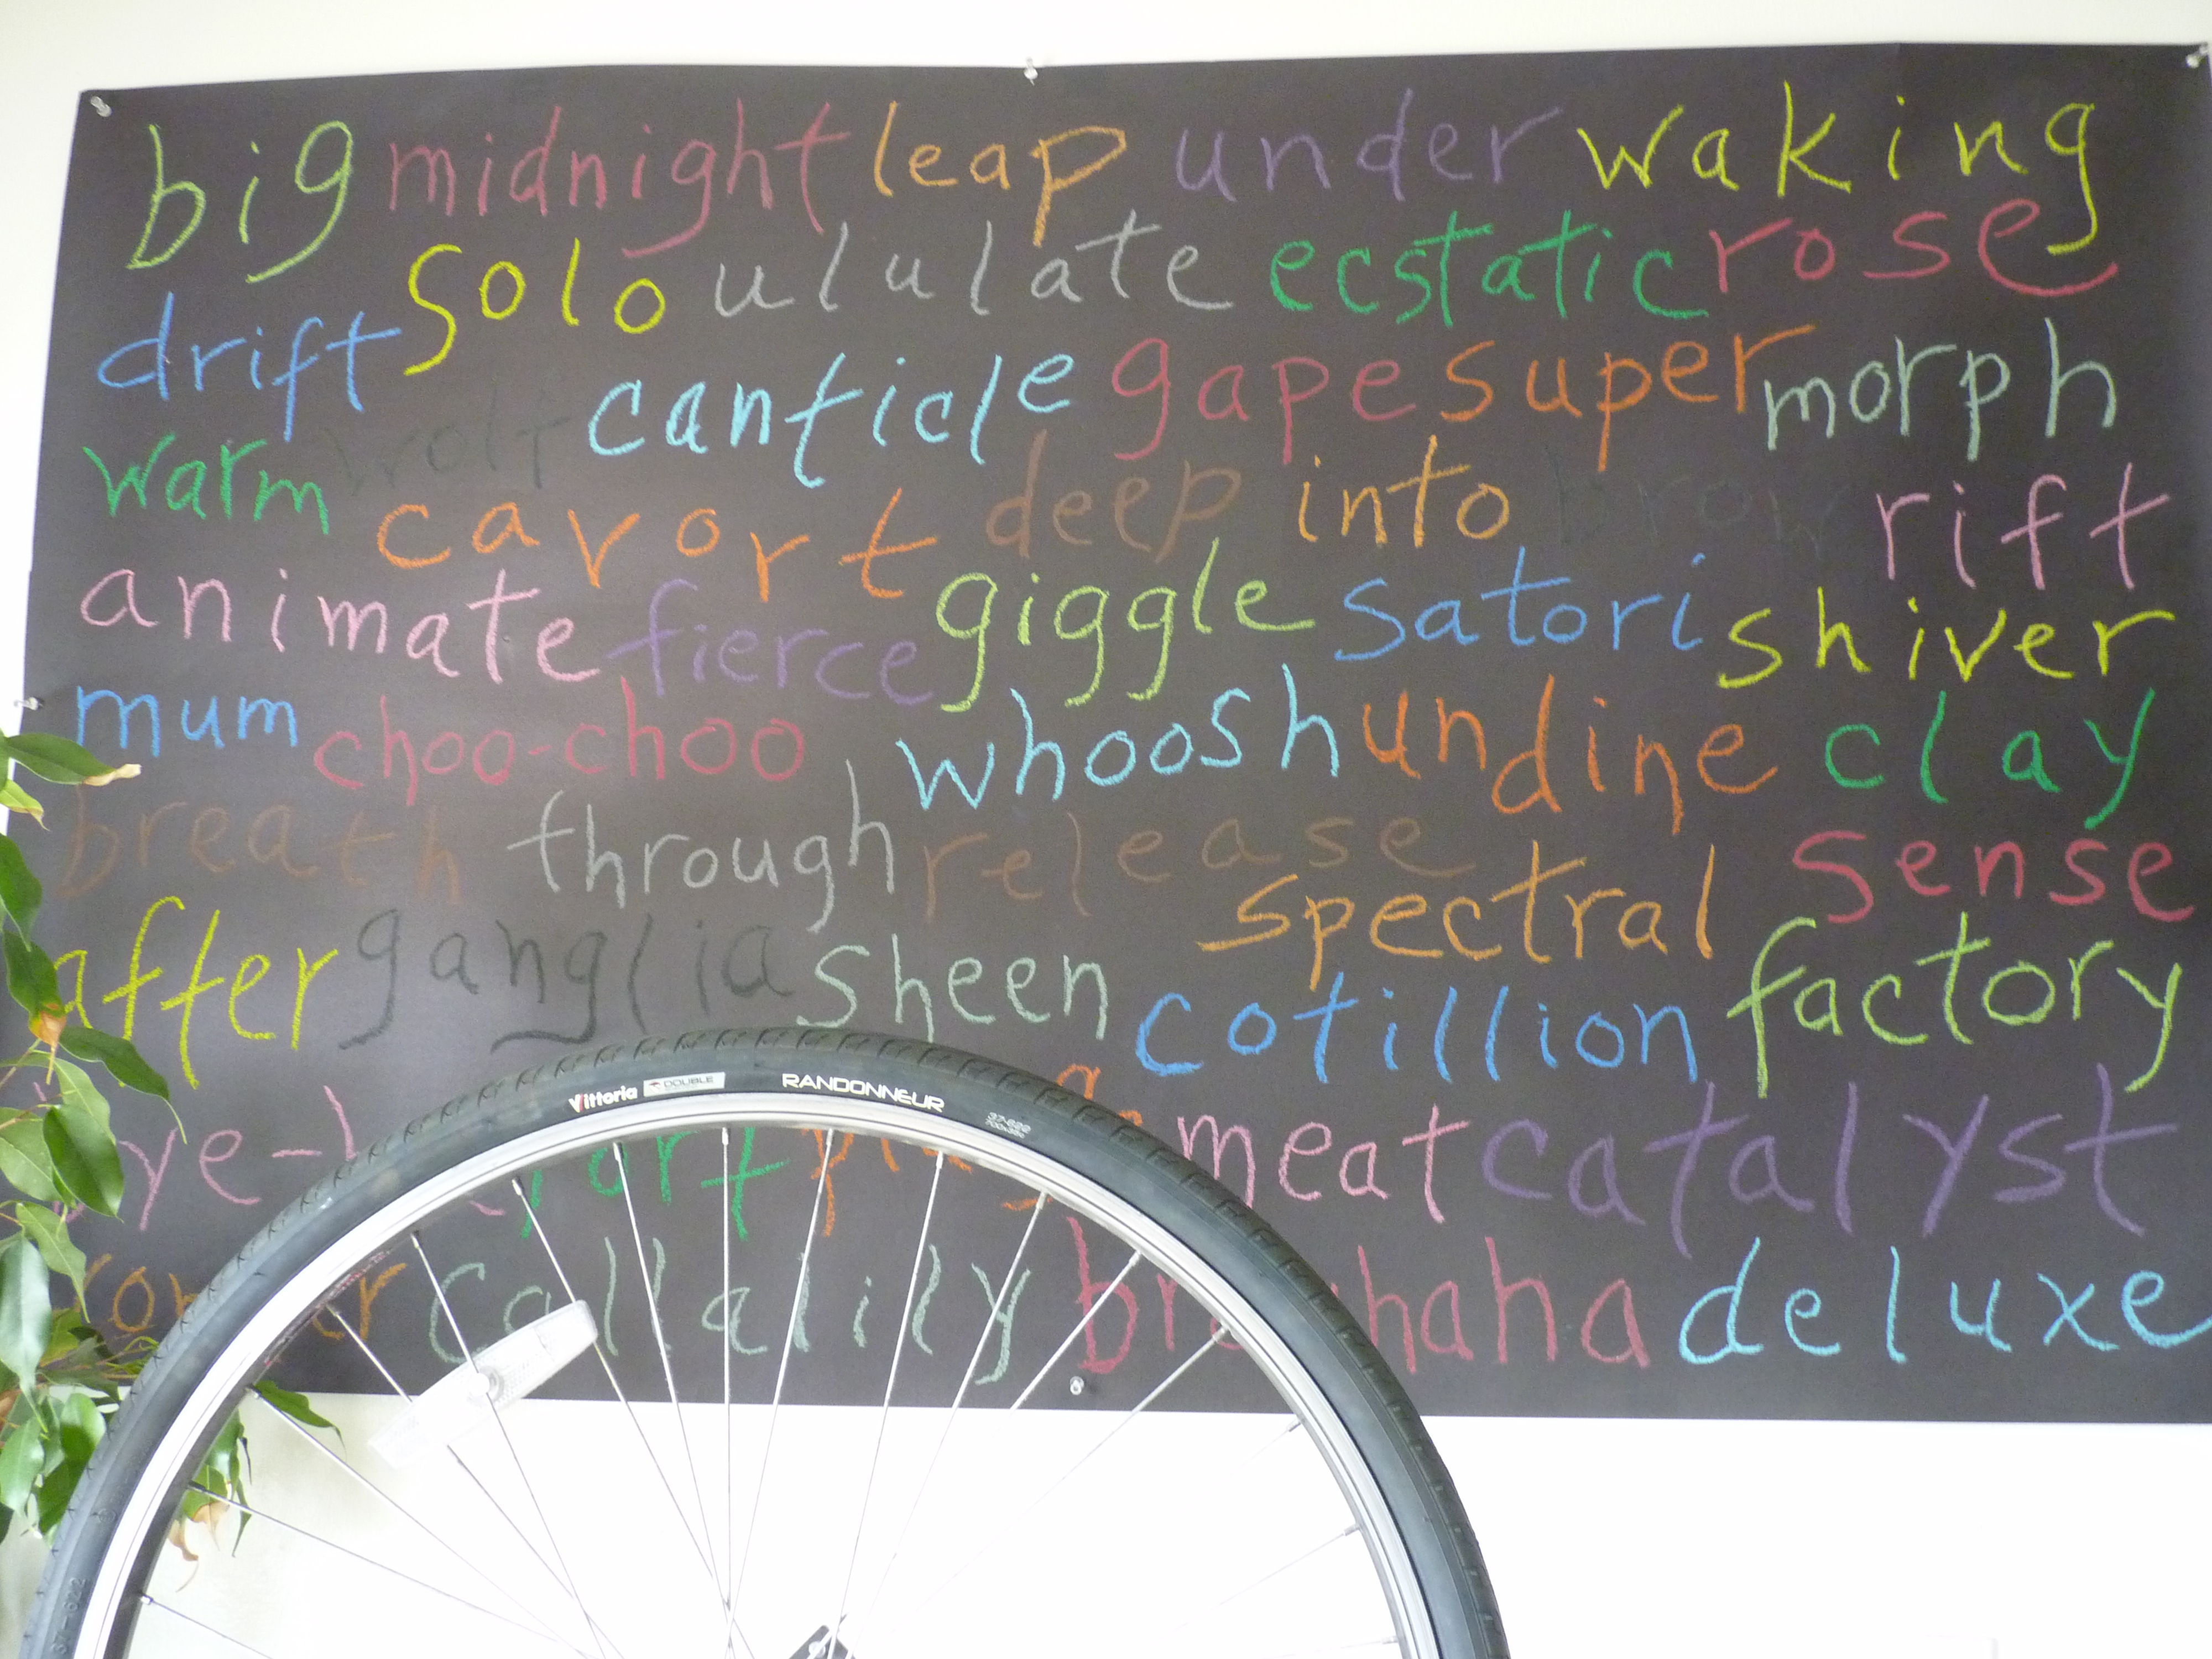 big midnight leap under waking
solo ululate ecstatic rose
drift canticle gape super morph
warm wolf cavort deep into brow rift
animate fierce giggle satori shiver
mum choo-choo whoosh undine clay
breath through release spectral sense
after ganglia sheen cotillion factory
meat catalyst
callalily deluxe
Vittoria DOUBLE RANDONNEUR
37-622
700x35c
37-622